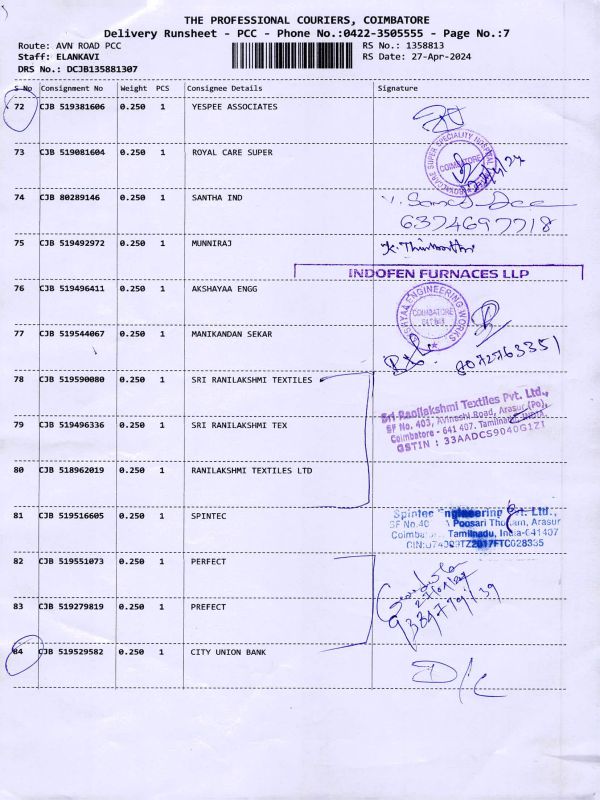 THE PROFESSIONAL COURIERS, COIMBATORE
Delivery Runsheet - PCC - Phone No.:0422-3505555 - Page No.:7
Route: AVN ROAD PCC RS No.: 1358813
Staff: ELANKAVI RS Date: 27-Apr-2024
DRS No.: DCJB135881307
S No Consignment No Weight PCS Consignee Details Signature
72 CJB 519381606 0.250 1 YESPEE ASSOCIATES
73 CJB 519081604 0.250 1 ROYAL CARE SUPER
COIMBATORE
74 CJB 80289146 0.250 1 SANTHA IND
6374697718
75 CJB 519492972 0.250 1 MUNNIRAJ
INDOFEN FURNACES LLP
76 CJB 519496411 0.250 1 AKSHAYAA ENGG
COIMBATORE
77 CJB 519544067 0.250 1 MANIKANDAN SEKAR
78 CJB 519590080 0.250 1 SRI RANILAKSHMI TEXTILES
Sri Ranilakshmi Textiles Pvt. Ltd.,
SF No. 403, Avineshi Road, Arasur (Po),
79 CJB 519496336 0.250 1 SRI RANILAKSHMI TEX
Coimbatore - 641 407. Tamilnadu, INDIA.
GSTIN : 33AADCS9040G1Z1
80 CJB 518962019 0.250 1 RANILAKSHMI TEXTILES LTD
81 CJB 519516605 0.250 1 SPINTEC
Spintec Engineering Pvt. Ltd.,
SF No.40 Poosari Thottam, Arasur
Tamilnadu, India-641407
82 CJB 519551073 0.250 1 PERFECT
83 CJB 519279819 0.250 1 PREFECT
84 CJB 519529582 0.250 1 CITY UNION BANK